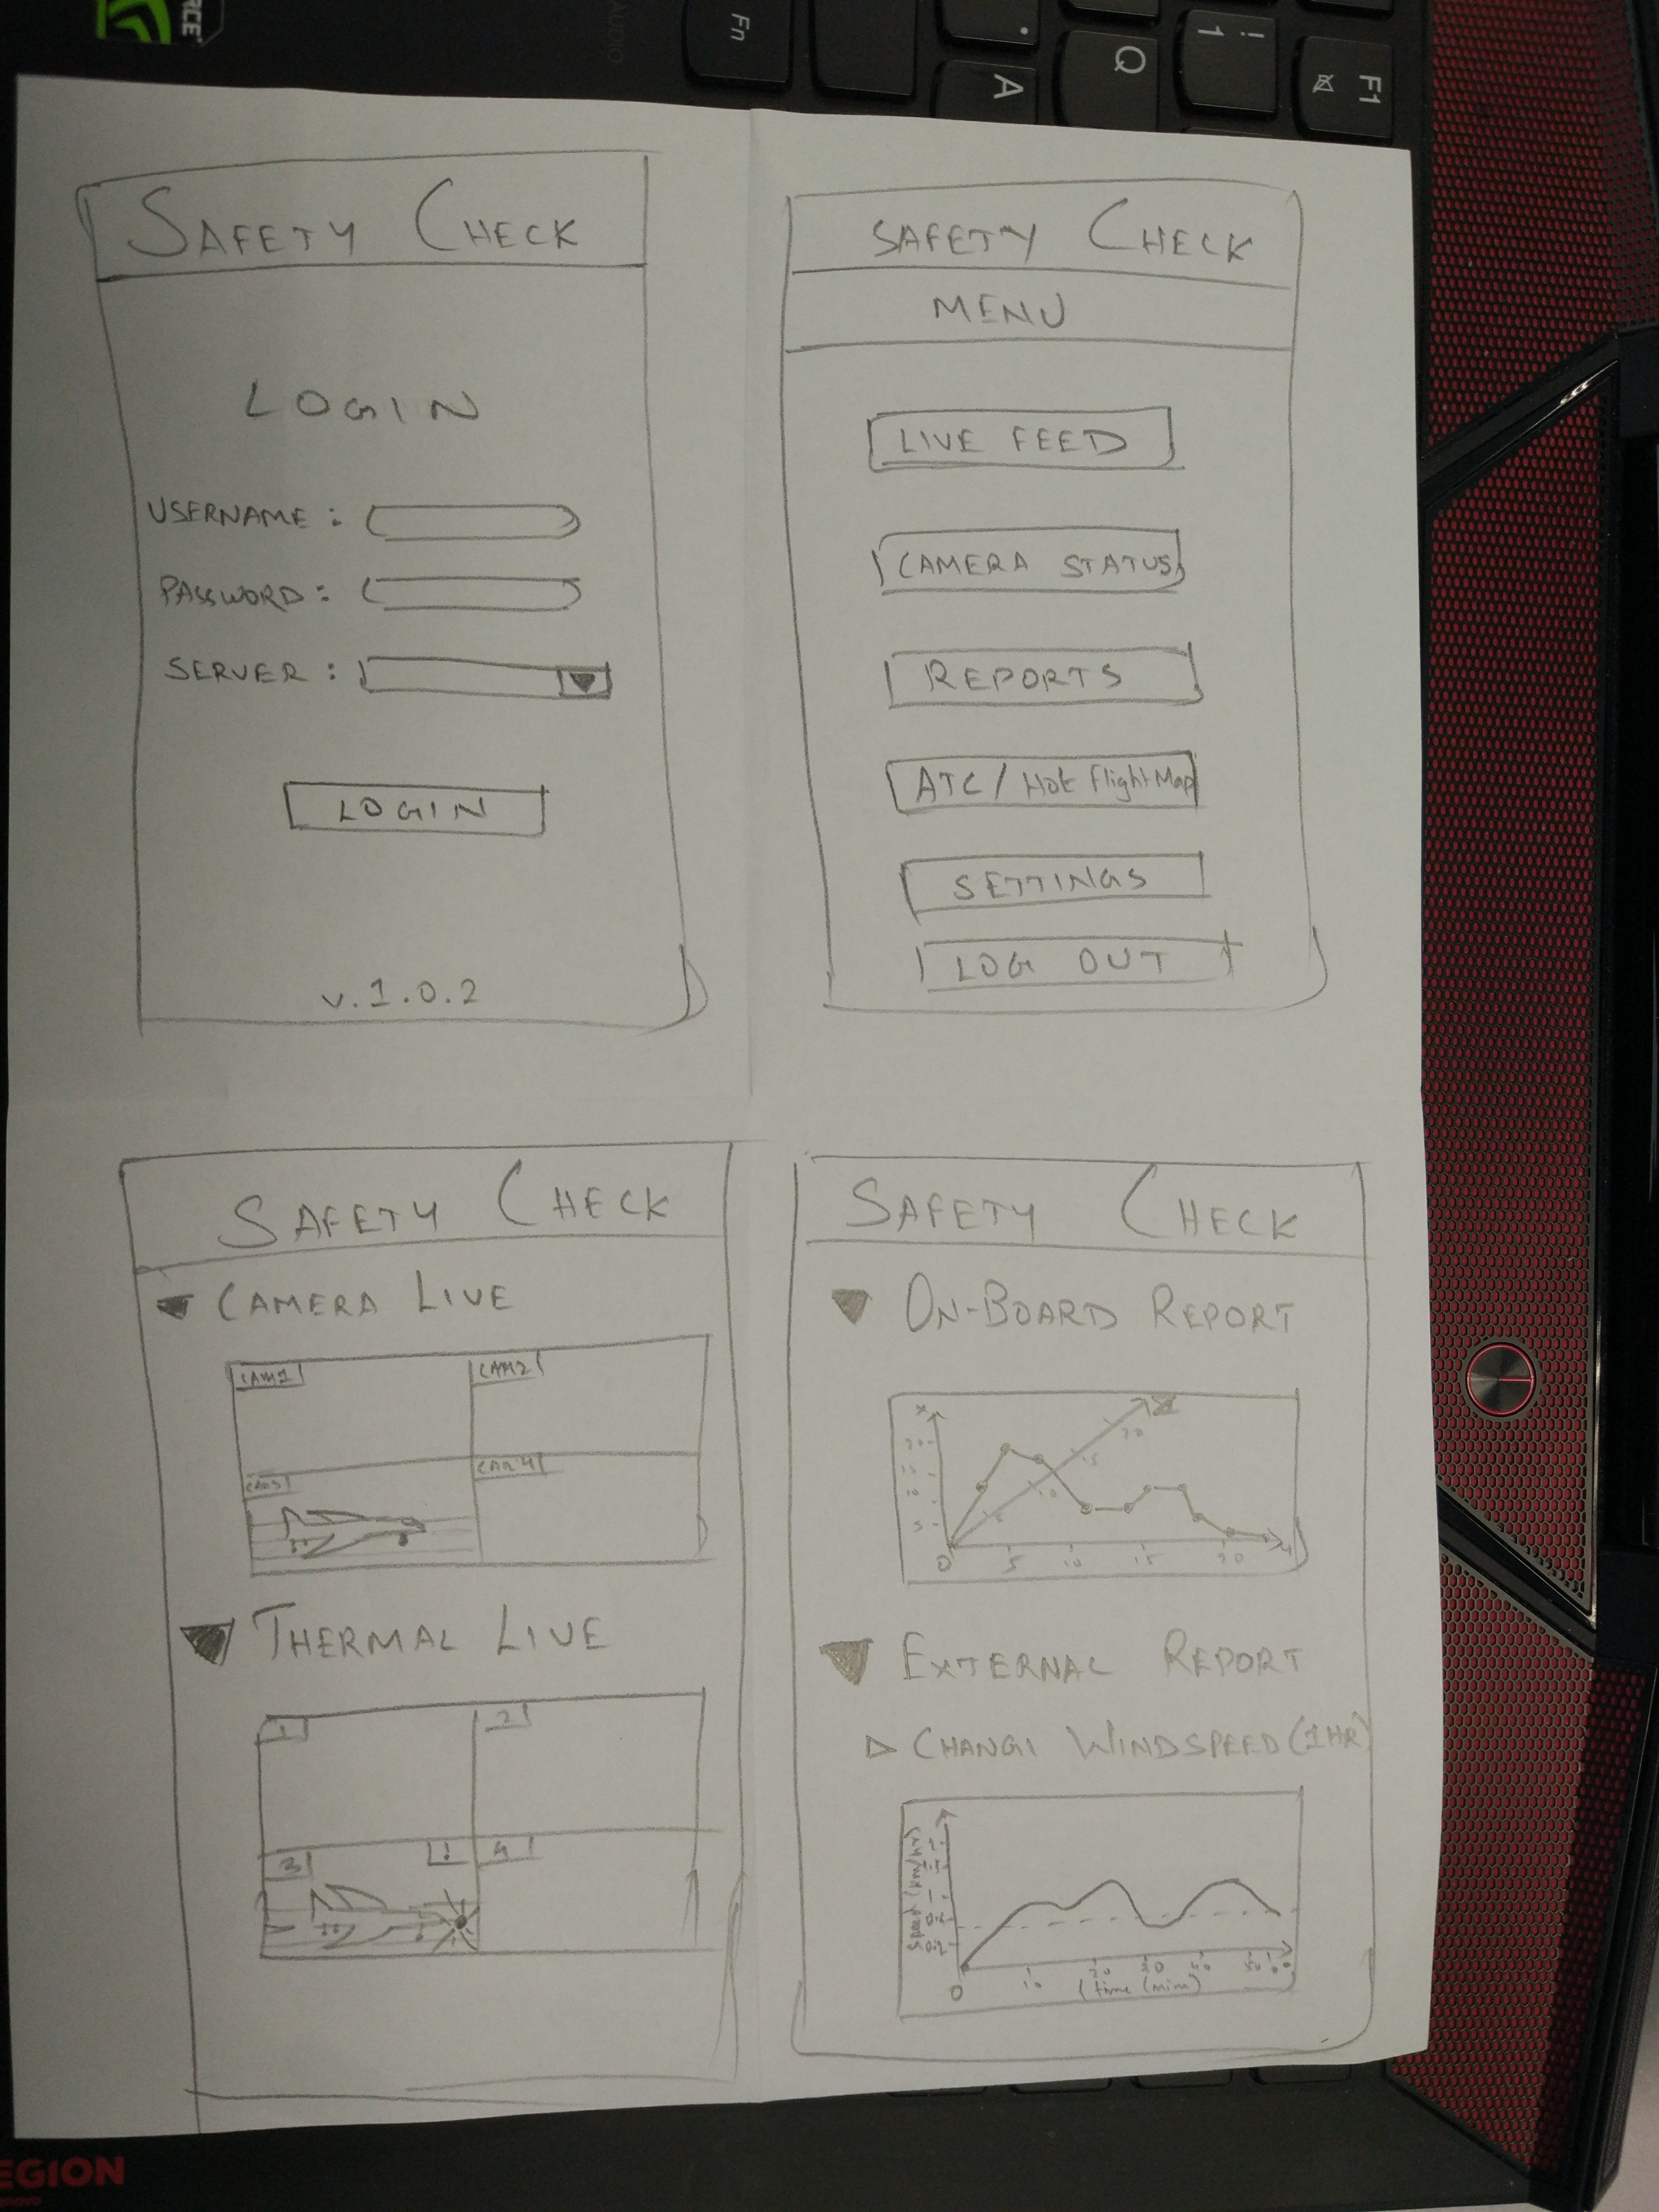 RCE
AUDIO
Fn
A
Q
!
1
F1
SAFETY CHECK
LOGIN
USERNAME :
PASSWORD :
SERVER :
LOGIN
v.1.0.2
SAFETY CHECK
MENU
LIVE FEED
CAMERA STATUS
REPORTS
ATC / Hot Flight Map
SETTINGS
LOG OUT
SAFETY CHECK
CAMERA LIVE
CAM1
CAM2
CAM3
CAM4
THERMAL LIVE
1
2
3
!
4
SAFETY CHECK
ON-BOARD REPORT
x
20
15
10
5
0
5 10 15 20
5
10
15
20
EXTERNAL REPORT
CHANGI WINDSPEED (1HR)
Speed (km/hr)
0
10 20 30 40 50
(time (min)
EGION